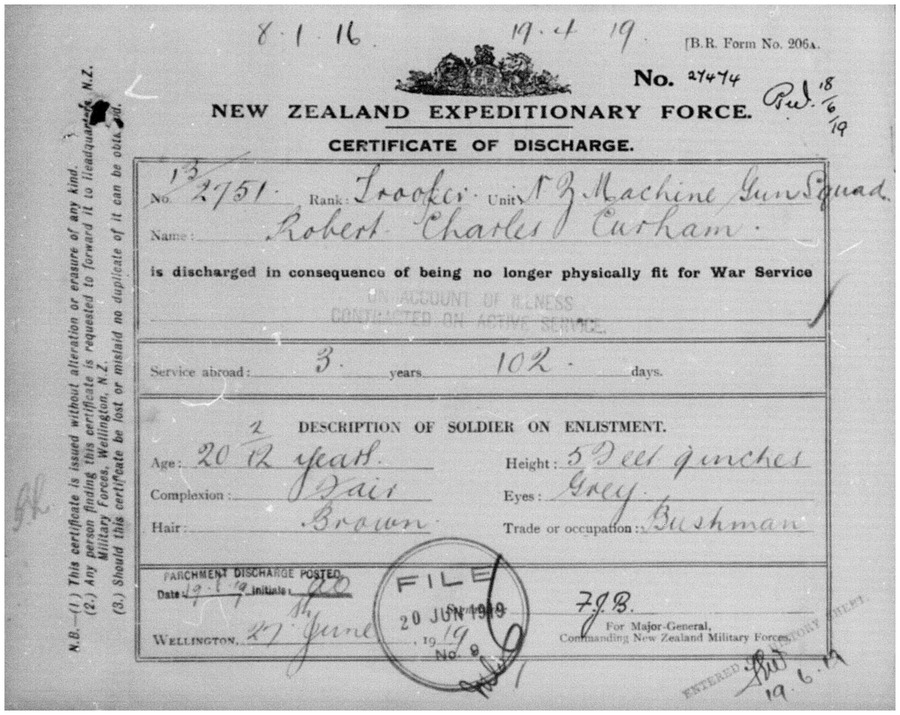 8.1.16 19.4.19.
[B.R. Form No. 206A.
No. 27474
18/6/19
NEW ZEALAND EXPEDITIONARY FORCE.
CERTIFICATE OF DISCHARGE.
No. 13/2751. Rank: Trooper. Unit: N Z Machine Gun Squad.
Name: Robert Charles Curham.
is discharged in consequence of being no longer physically fit for War Service
ON ACCOUNT OF ILLNESS
CONTRACTED ON ACTIVE SERVICE.
Service abroad: 3. years 102. days.
DESCRIPTION OF SOLDIER ON ENLISTMENT.
Age: 20 2/12 years. Height: 5 Feet 9 inches
Complexion: Fair Eyes: Grey.
Hair: Brown. Trade or occupation: Bushman
PARCHMENT DISCHARGE POSTED.
Date: Initials:
FILE
20 JUN 1919
No. 9
WELLINGTON, 27 June, 1919
F.J.B.
For Major-General,
Commanding New Zealand Military Forces.
ENTERED HISTORY SHEET.
19.6.19
N.B.—(1) This certificate is issued without alteration or erasure of any kind.
(2.) Any person finding this certificate is requested to forward it to Headquarters, N.Z.
Military Forces, Wellington, N.Z.
(3.) Should this certificate be lost or mislaid no duplicate of it can be obtained.